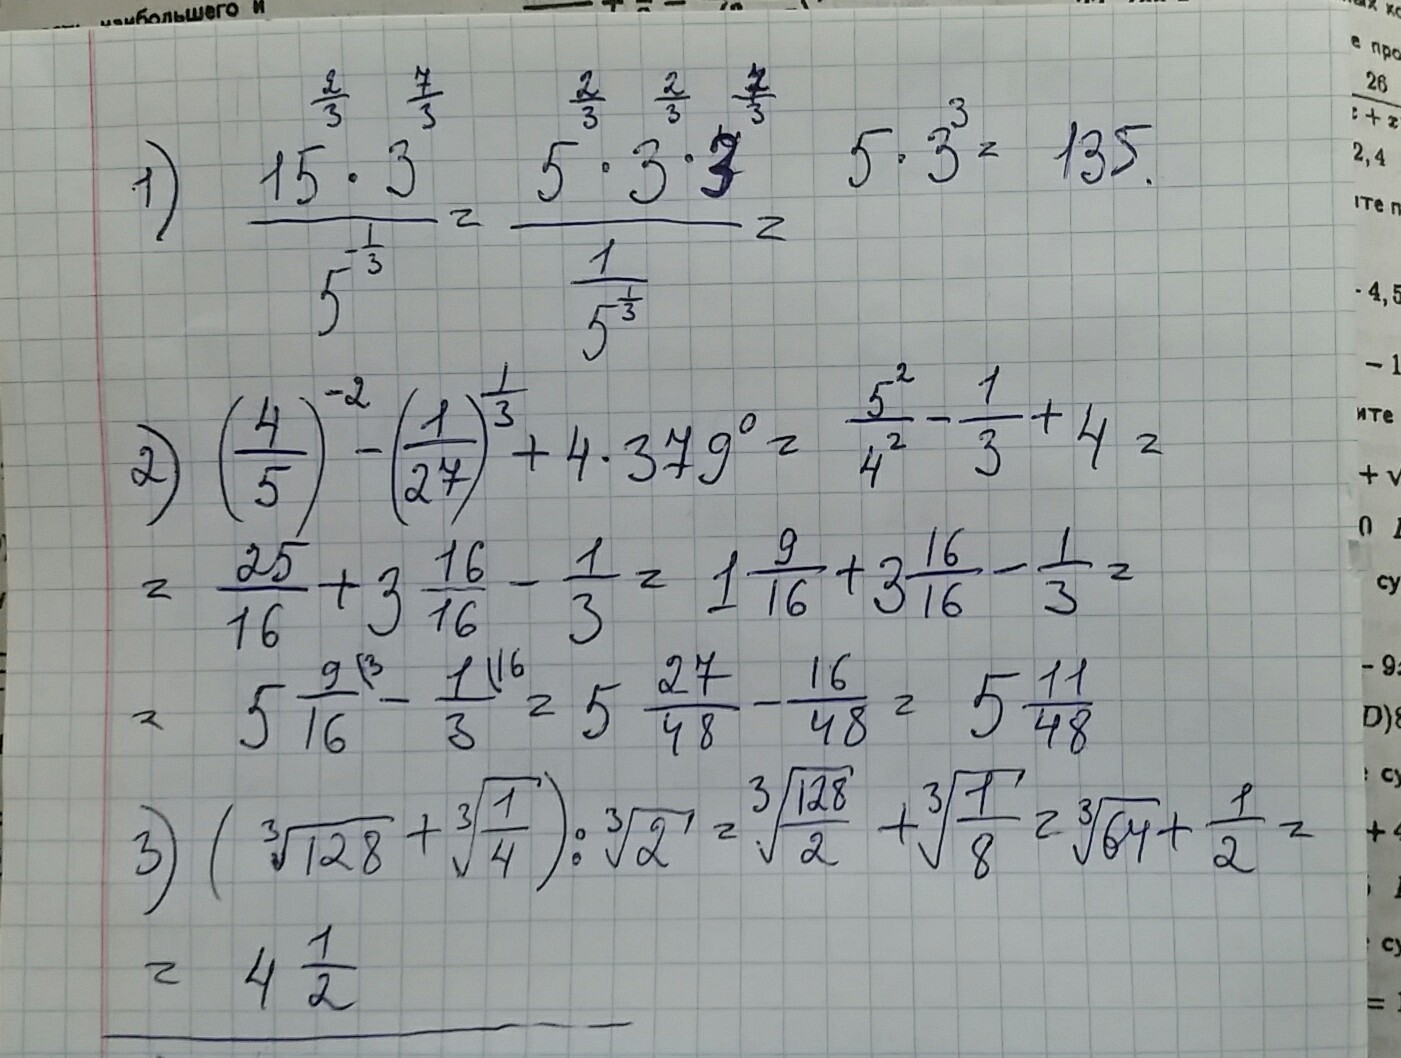 наибольшего и
1) (15^(2/3) · 3^(7/3)) / 5^(-1/3) = (5^(2/3) · 3^(2/3) · 3^(7/3)) / (1/5^(1/3)) = 5 · 3^3 = 135.
2) (4/5)^(-2) - (1/27)^(1/3) + 4 · 379^0 = 5^2/4^2 - 1/3 + 4 =
= 25/16 + 3 16/16 - 1/3 = 1 9/16 + 3 16/16 - 1/3 =
= 5 9/16 (3 - 1/3 (16 = 5 27/48 - 16/48 = 5 11/48
3) (∛128 + ∛(1/4)) : ∛2 = ∛(128/2) + ∛(1/8) = ∛64 + 1/2 =
= 4 1/2
е про
26
2,4
4,5
ите
+ 4